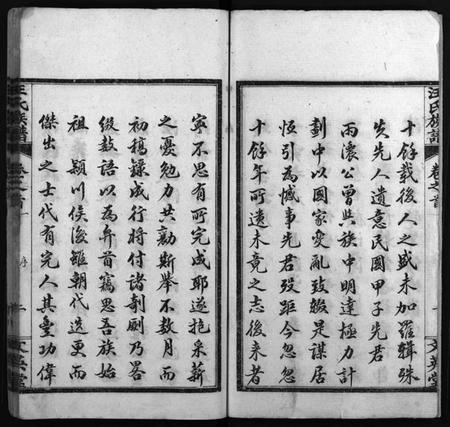 汪氏族譜
卷之首
文英堂
十餘載後人之盛未加羅輯殊
失先人遺意民國甲子先君
雨濃公曾與族中明達極力計
劃中以國家變亂致輟是謀居
恆引為憾事先君歿距今忽忽
十餘年所遺未竟之志後來者
寧不思有所完成耶遂抱采薪
之憂勉力共勷斯舉不數月而
初稿錄成行將付諸剞劂乃畧
綴數語以為弁首竊思吾族始
祖 潁川侯後雖朝代迭更而
傑出之士代有完人其豐功偉
汪氏族譜
卷之首
序
文英堂